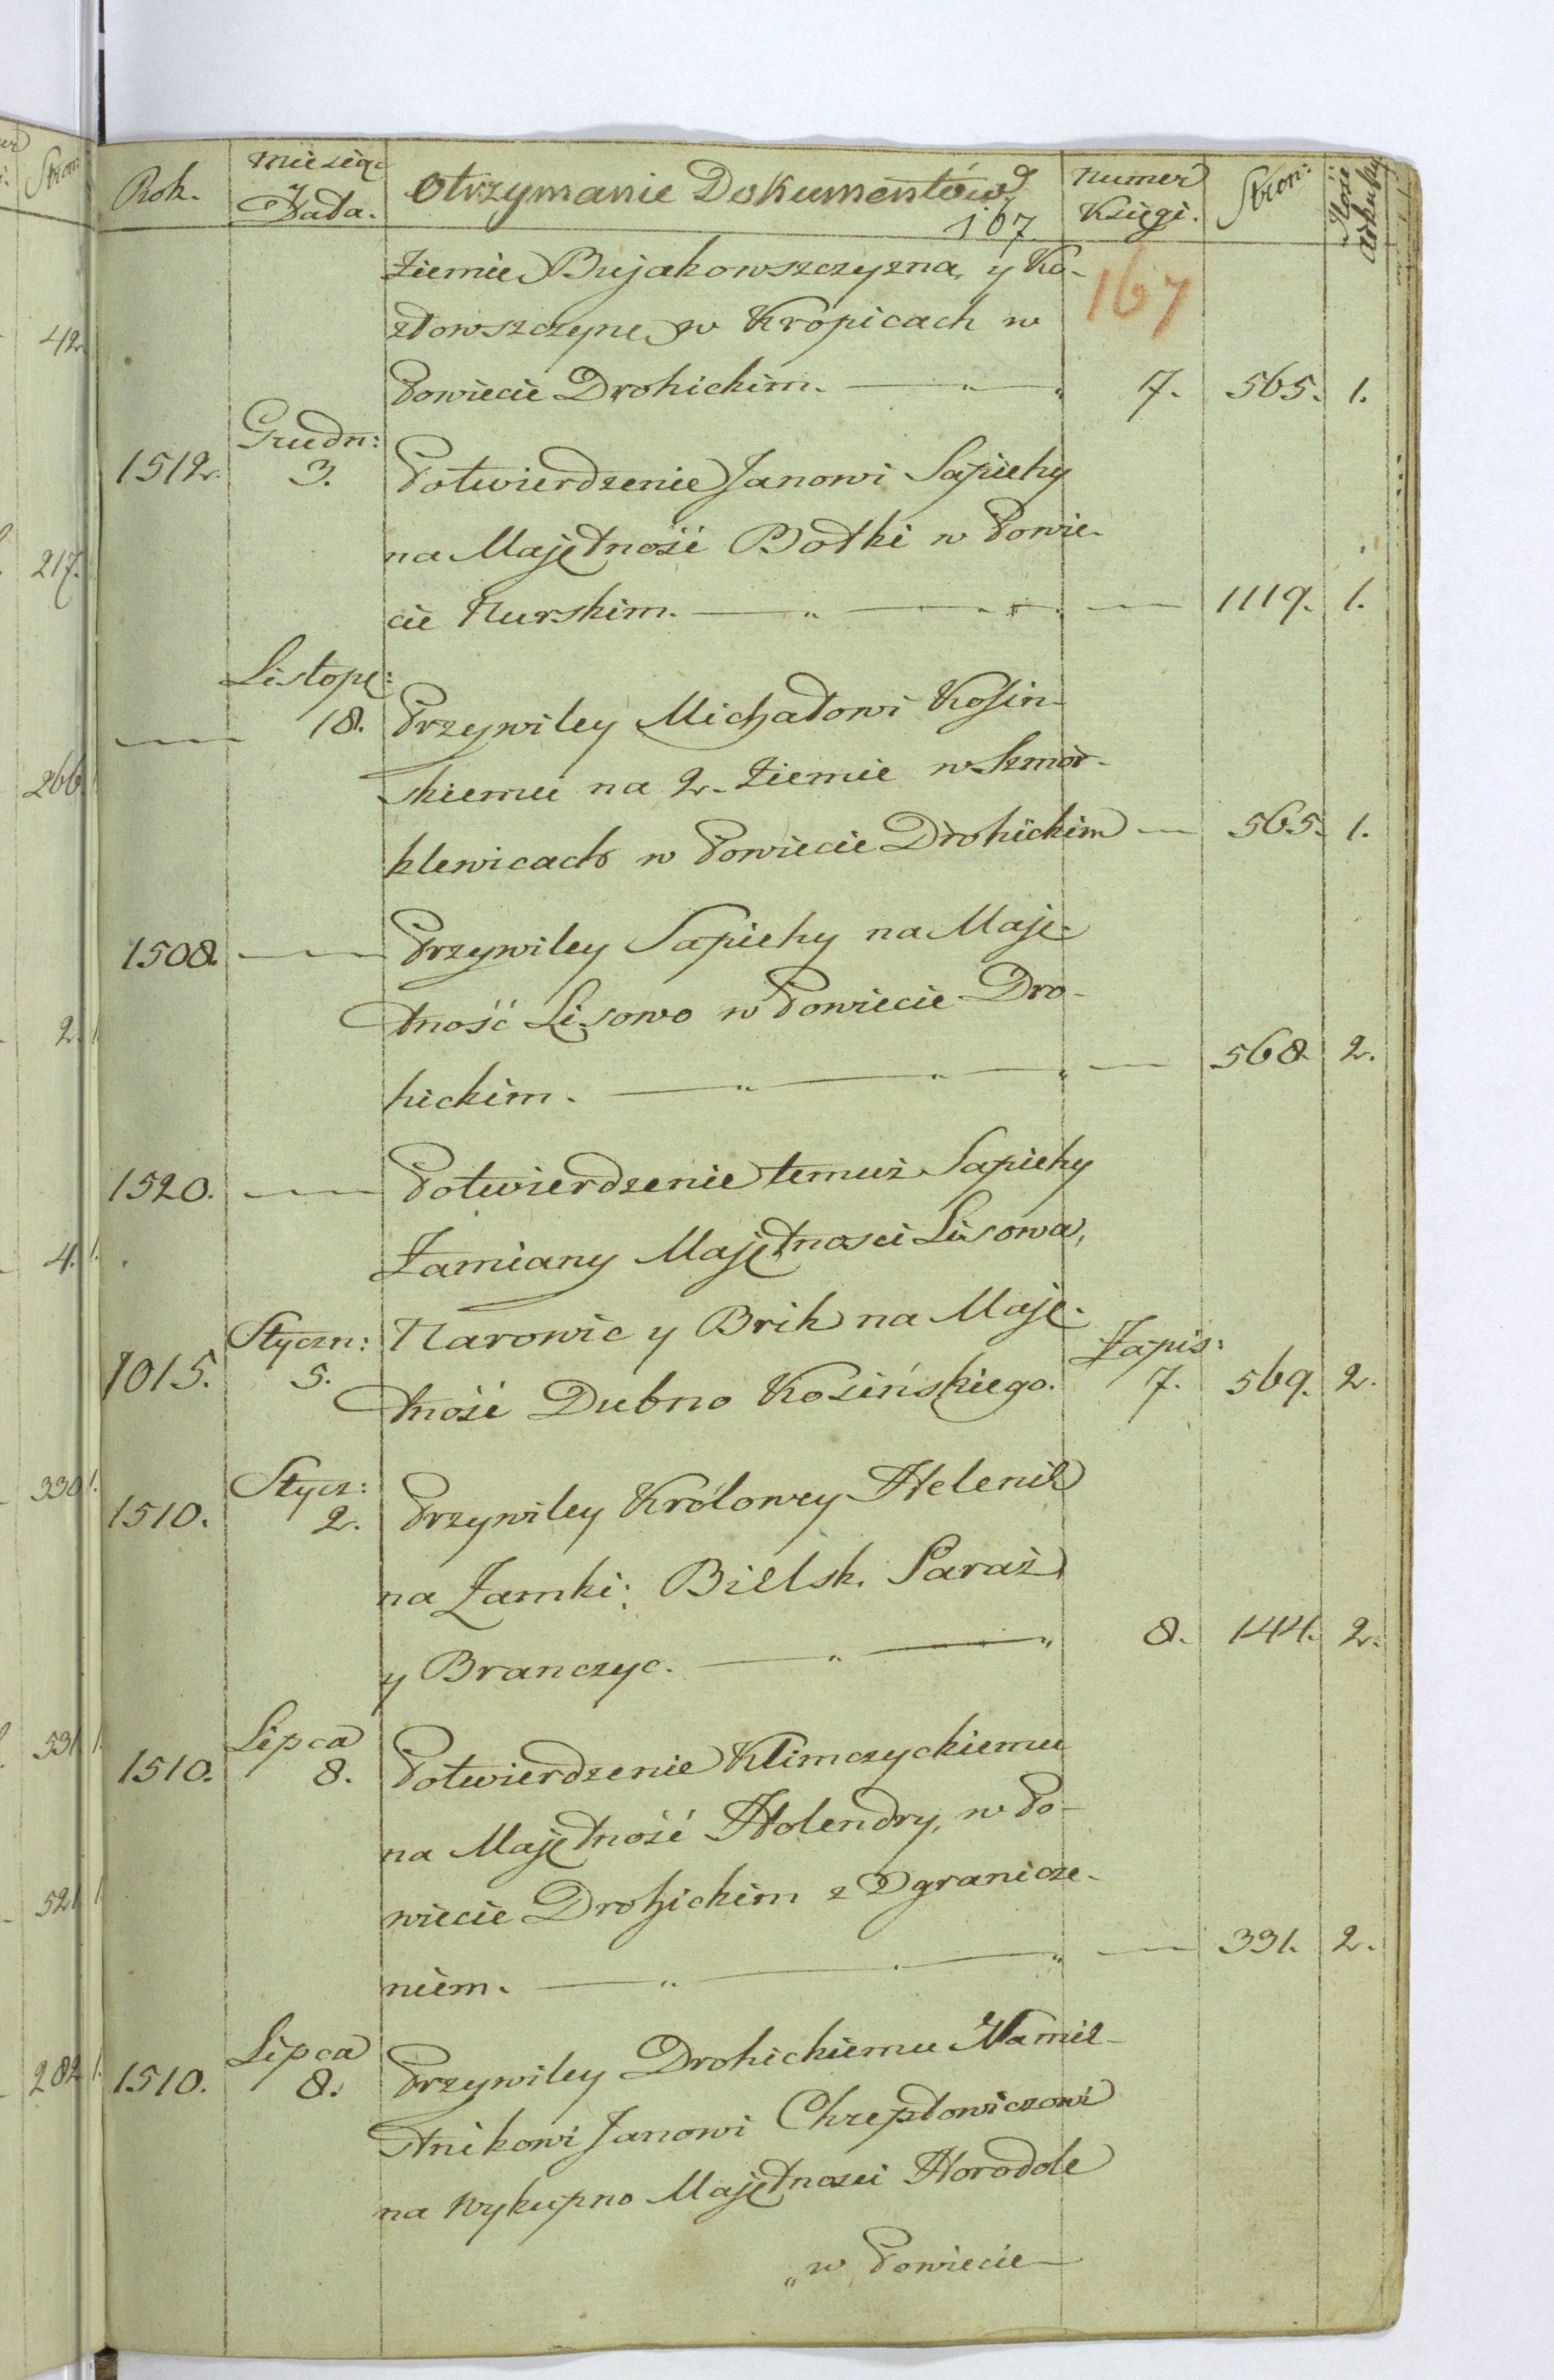 Rok. Miesiąc Data. Otrzymanie Dokumentów Numer Księgi. Stron: Ilość Arkuszy
167
167
Ziemie Bujakowszczyzna, y Ko-
złowszczyne w Kropicach w
Powiecie Drohickim. 7. 565. 1.
1512. Grudn: 3. Potwierdzenie Janowi Sapiehy
na Majętność Bodki w Powie-
cie Nurskim. 1119. 1.
Listopa: 18. Przywiley Michałowi Kosin-
skiemu na 2. Ziemie w Szmor-
klewicach w Powiecie Drohickim 565. 1.
1508. Przywiley Sapiehy na Maję-
tność Lisowo w Powiecie Dro-
hickim. 568. 2.
1520. Potwierdzenie temuż Sapiehy
Zamiany Majętnosci Lisowa,
Narowic y Brik na Maję-
1015. Styczn: 5. tność Dubno Kosińskiego. Zapis: 7. 569. 2.
1510. Stycz: 2. Przywiley Królowey Helenie
na Zamki: Bielsk. Saraż
y Branczyc. 8. 144. 2.
1510. Lipca 8. Potwierdzenie Klimczyckiemu
na Majętność Holendry, w Po-
wiecie Drohickim z Ogranicze-
niem. 331. 2.
1510. Lipca 8. Przywiley Drohickiemu Namie-
stnikowi Janowi Chreptowiczowi
na Wykupno Majętnosci Horodole
w Powiecie